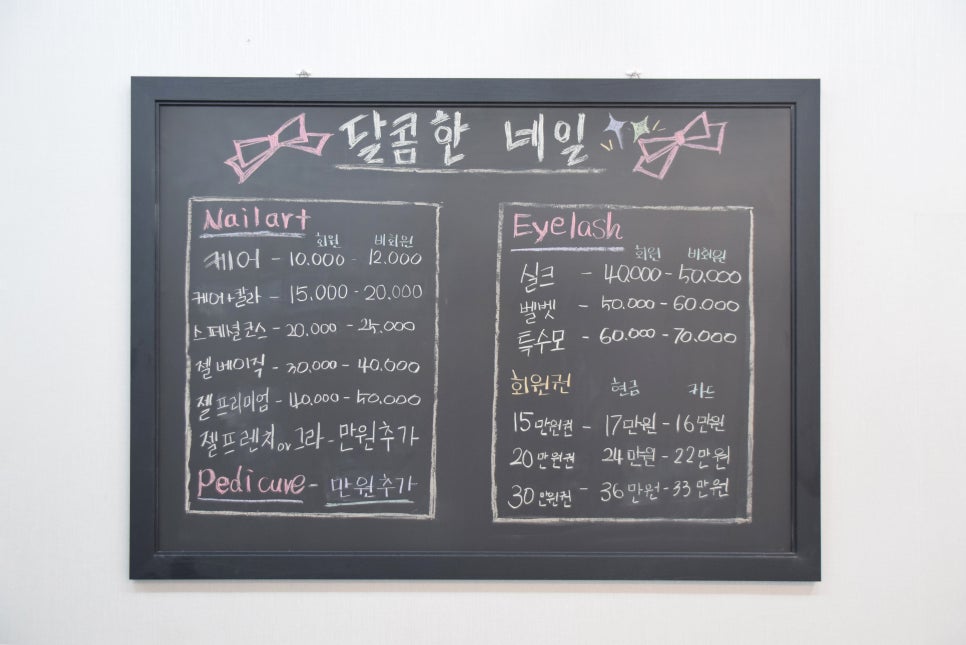 달콤한 네일
Nailart
회원 비회원
케어 - 10.000 - 12.000
케어+칼라 - 15,000 - 20,000
스페셜코스 - 20,000 - 25,000
젤 베이직 - 30,000 - 40,000
젤 프리미엄 - 40,000 - 50,000
젤프렌치 or 그라 - 만원추가
Pedicure - 만원추가
Eyelash
회원 비회원
실크 - 40,000 - 50,000
벨벳 - 50.000 - 60.000
특수모 - 60.000 - 70,000
회원권 현금 카드
15만원권 - 17만원 - 16만원
20만원권 24만원 - 22만원
30만원권 - 36만원 - 33만원